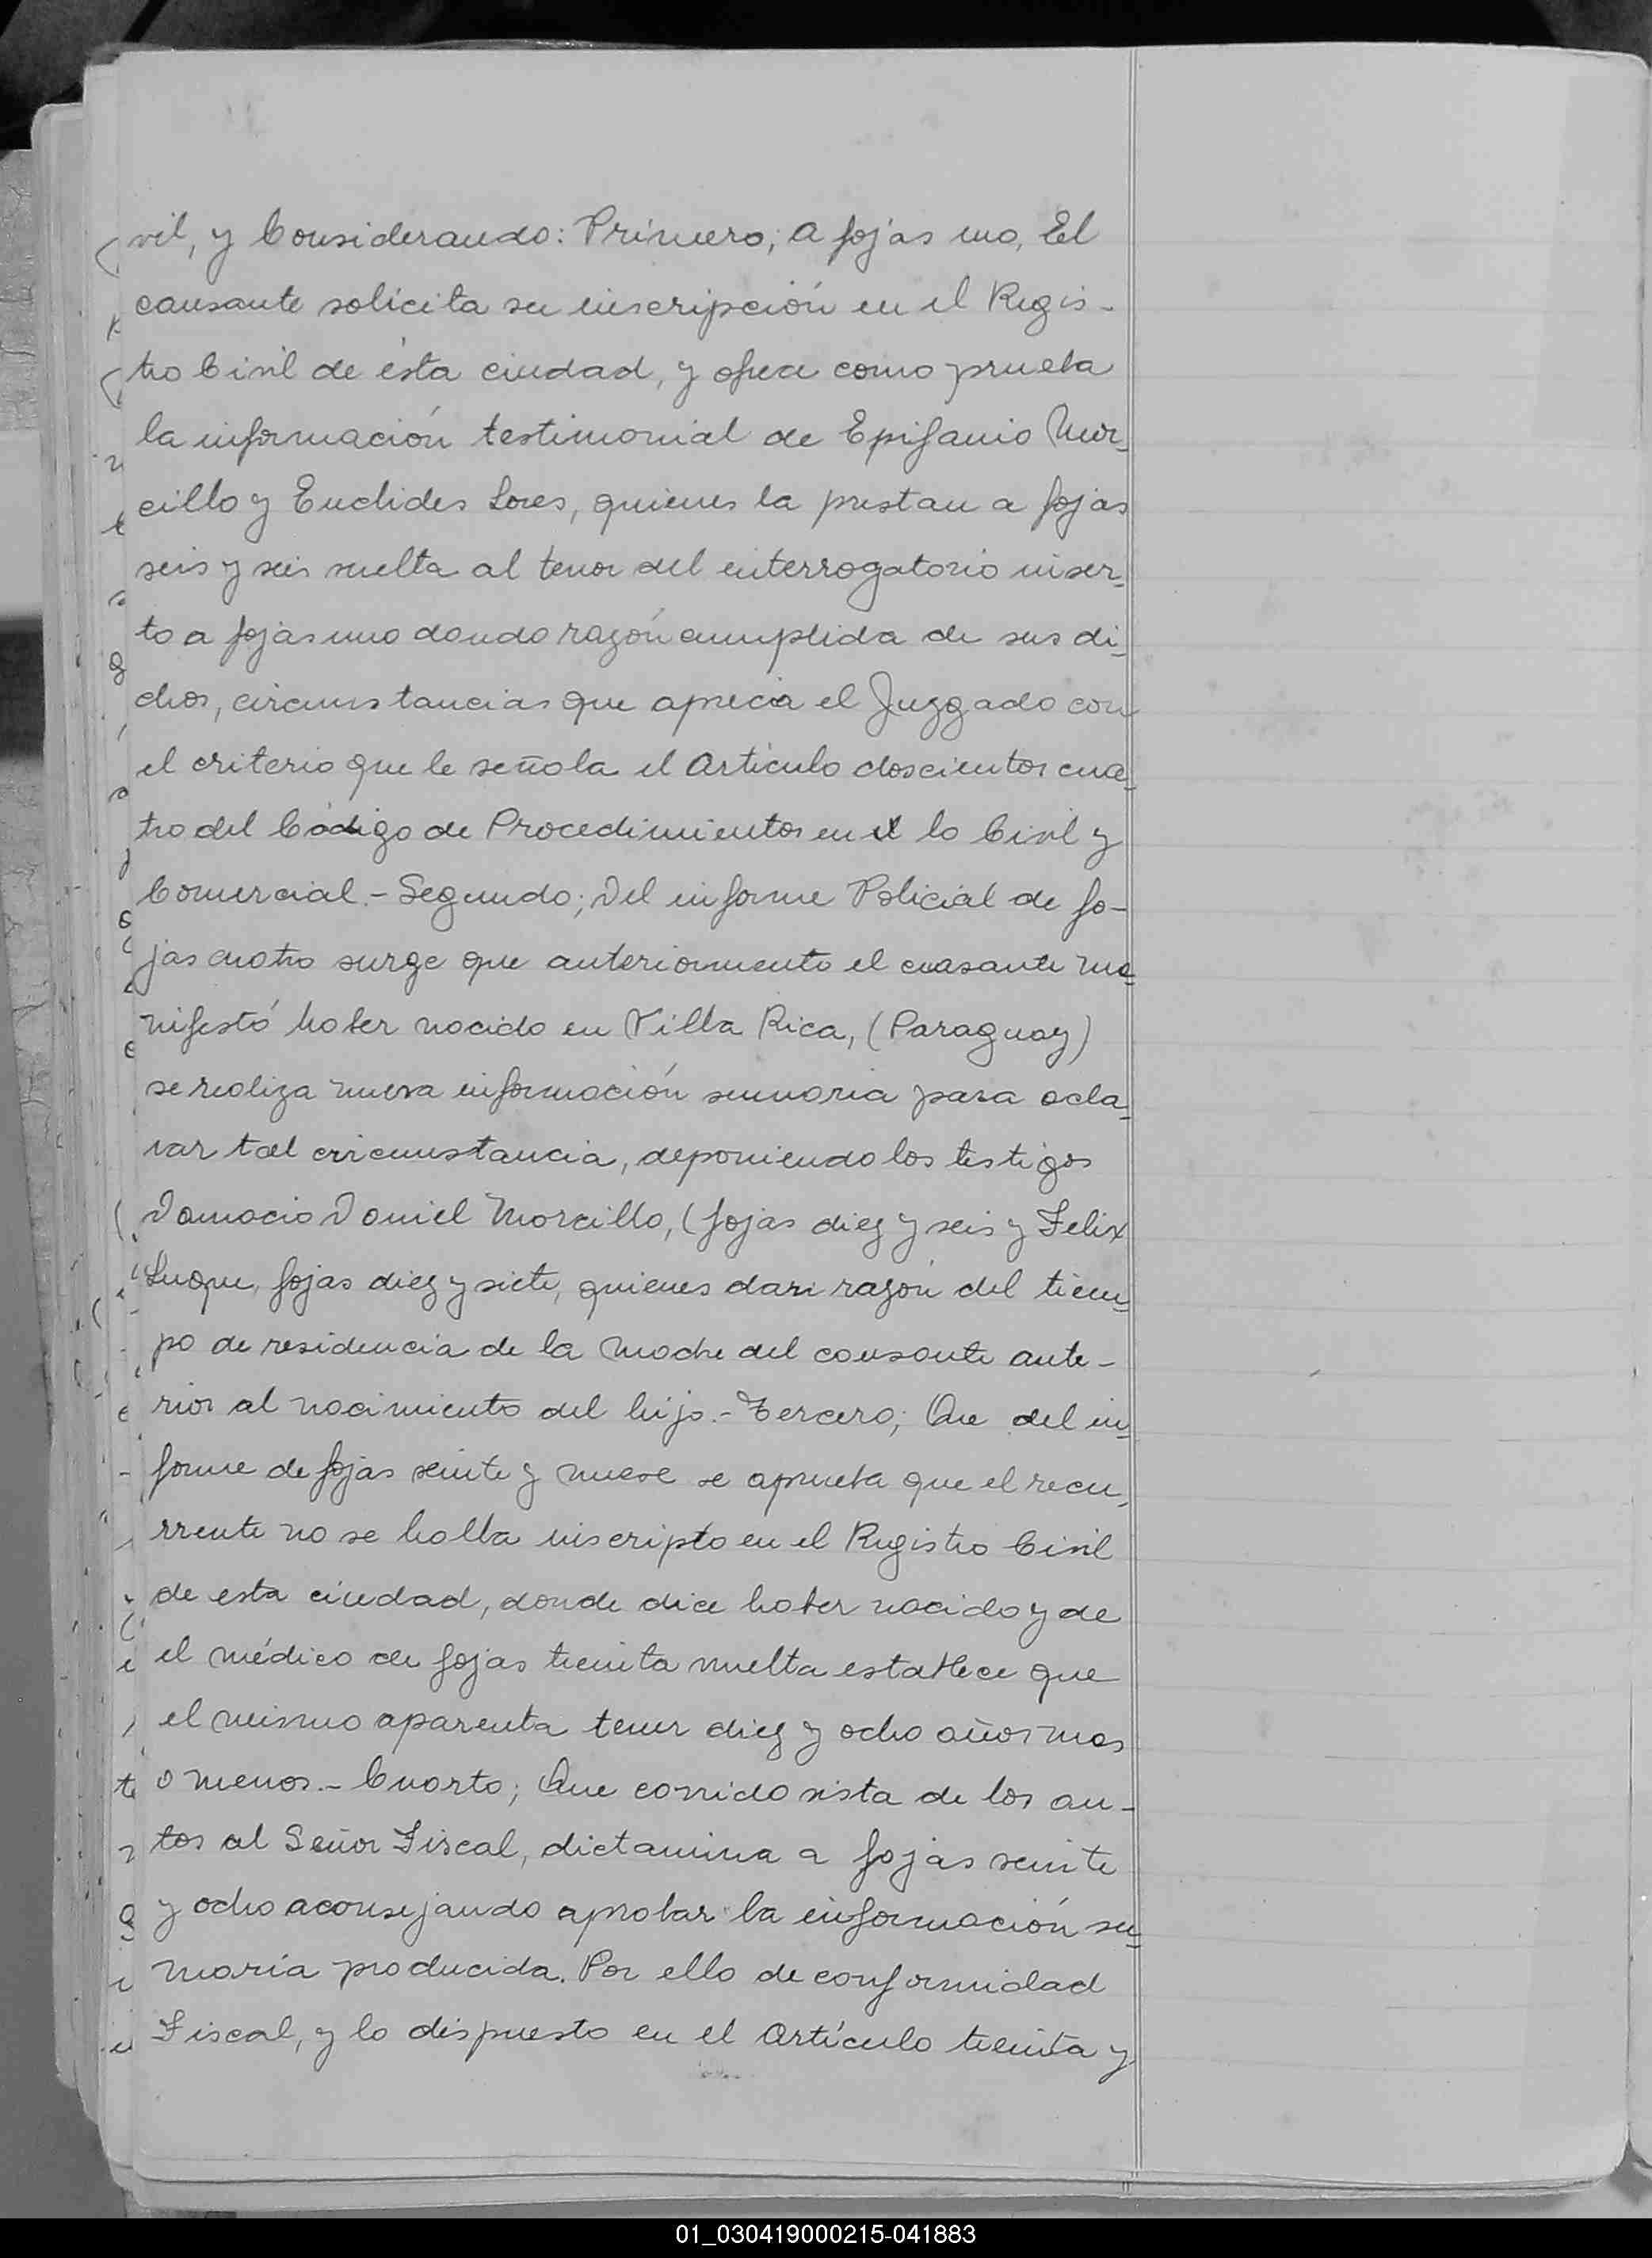 vil, y Considerando: Primero; a fojas uno, El
causante solicita su inscripción en el Regis-
tro Civil de ésta ciudad, y ofrece como prueba
la información testimonial de Epifanio Mor-
cillo y Euclides Lores, quienes la prestan a fojas
seis y seis vuelta al tenor del interrogatorio inser-
to a fojas uno dando razón cumplida de sus di-
chos, circunstancias que aprecia el Juzgado con
el criterio que le señala el Artículo doscientos cua-
tro del Código de Procedimientos en el lo Civil y
Comercial.- Segundo; Del informe Policial de fo-
jas cuatro surge que anteriormente el cuasante ma-
nifestó haber nacido en Villa Rica, (Paraguay)
se realiza nueva información sumaria para acla-
rar tal circunstancia, deponiendo los testigos
Damacio Daniel Morcillo, (fojas diez y seis y Felix
Luque, fojas diez y siete, quienes dan razón del tiem-
po de residencia de la madre del causante ante-
rior al nacimiento del hijo.- Tercero; Que del in-
forme de fojas veinte y nueve se aprueba que el recu-
rrente no se halla inscripto en el Registro Civil
de esta ciudad, donde dice haber nacido y de
el médico de fojas treinta vuelta establece que
el mismo aparenta tener diez y ocho años mas
o menos.- Cuarto; Que corrido vista de los au-
tos al Señor Fiscal, dictamina a fojas veinte
y ocho aconsejando aprobar la información su-
maria producida. Por ello de conformidad
Fiscal, y lo dispuesto en el Artículo treinta y
01_030419000215-041883